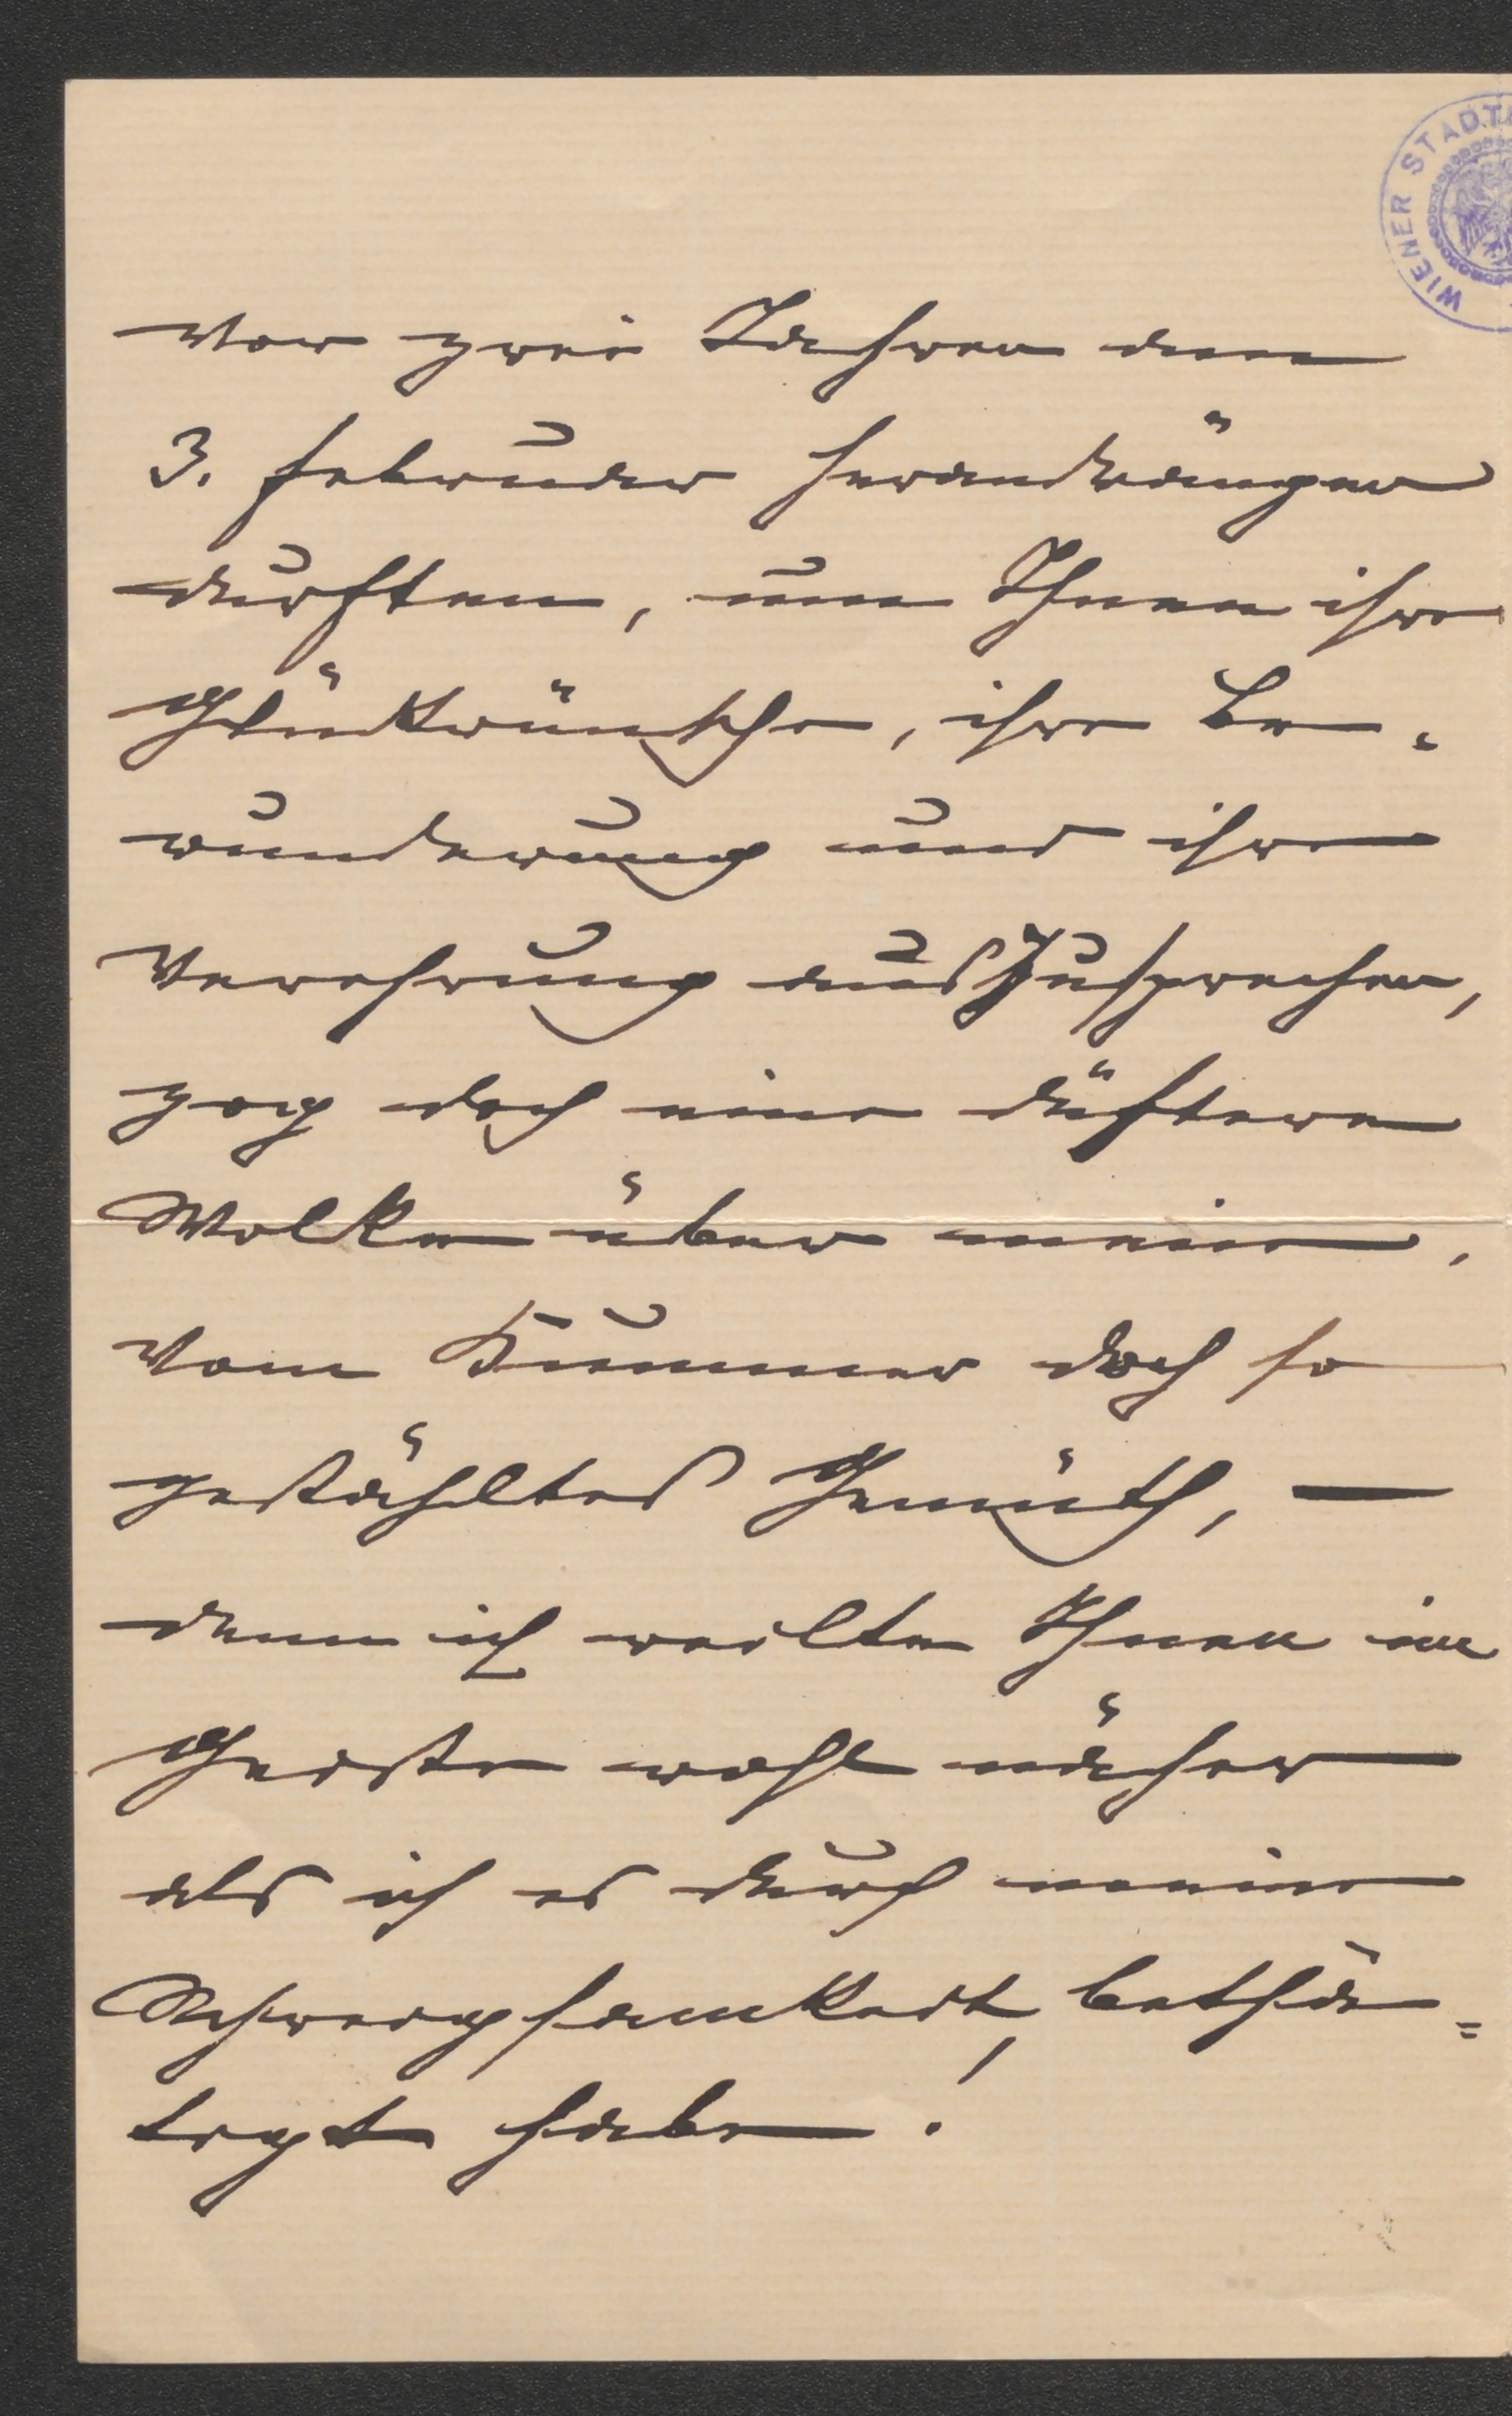 WIENER STADT
vor zwei Jahren am
3. Februar herandrängen
durften, um Ihnen ihre
Glückwünsche, ihre Be-
wunderung und ihre
Verehrung auszusprechen,
zog doch eine düstere
Wolke über mein,
vom Kummer doch so
gestähltes Gemüth, —
denn ich weilte Ihnen im
Geiste wohl näher
als ich es durch meine
Schweigsamkeit, bethä=
tigt habe!